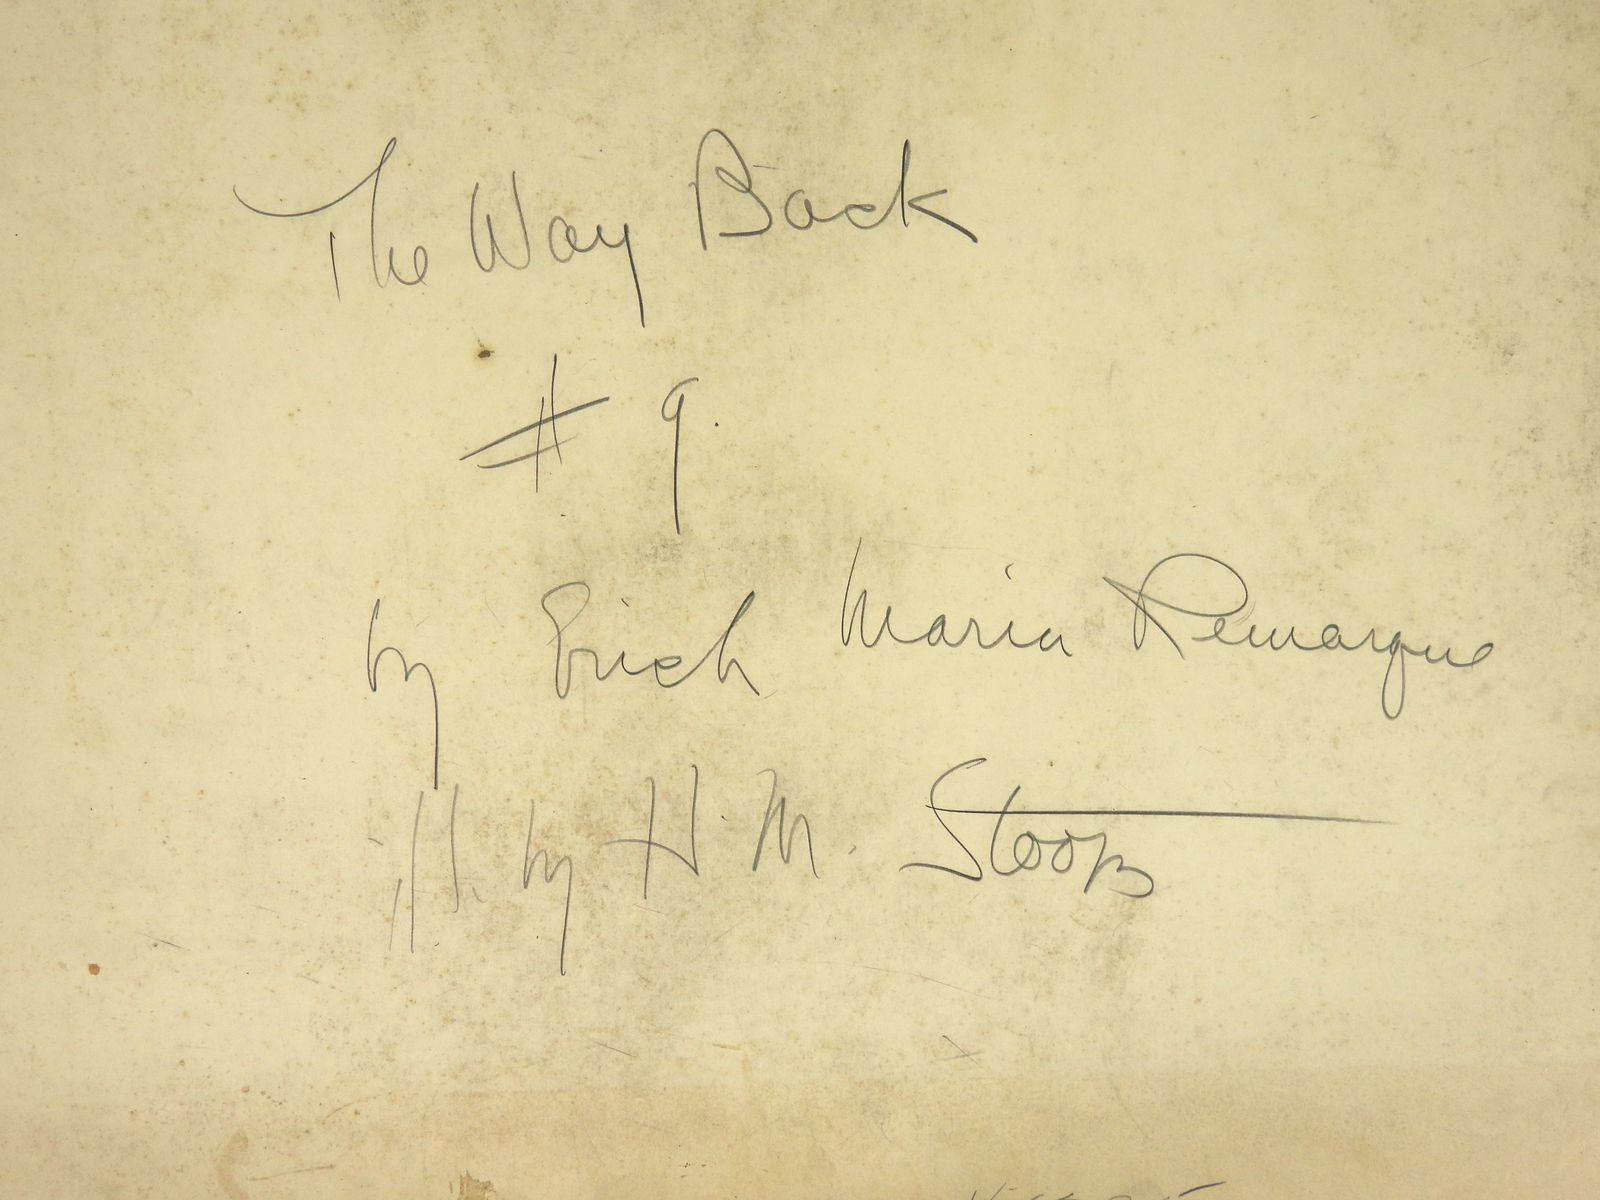 The Way Back
# 9.
by Erich Maria Remarque
Ill. by H. M. Stoops